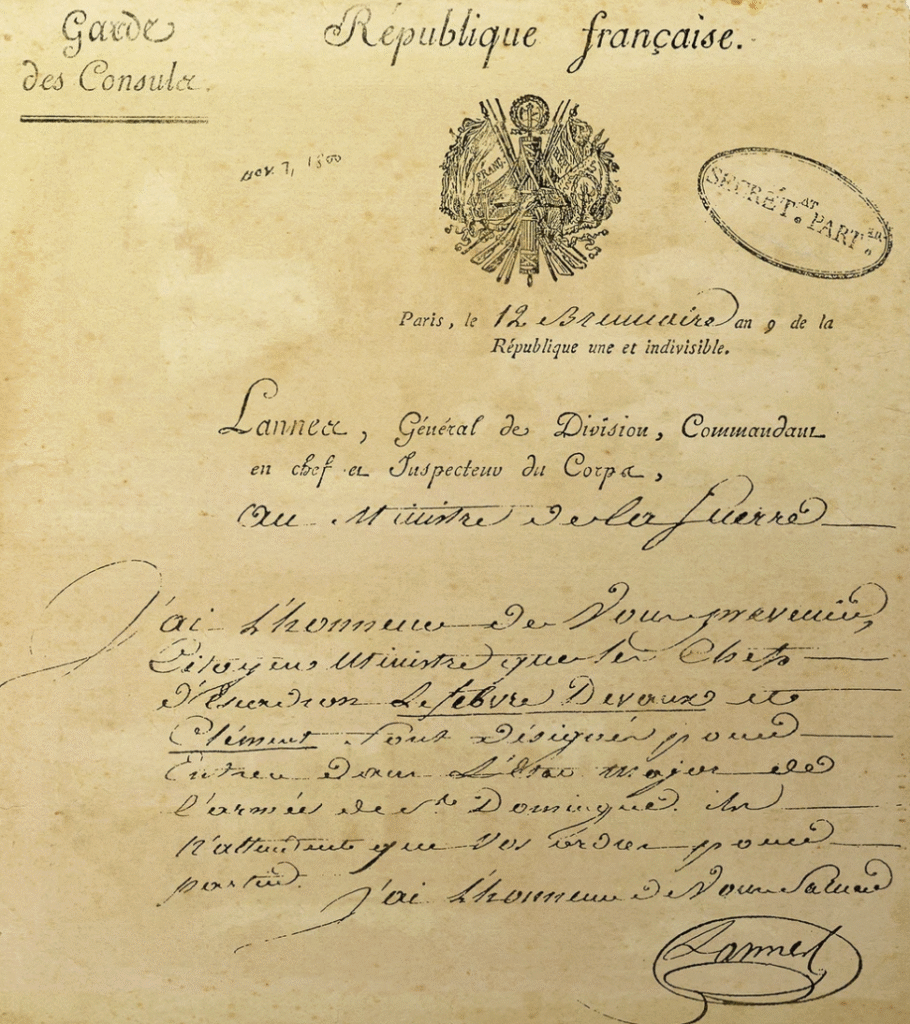 Garde
des Consuls.
République française.
nov. 7, 1800
FRANÇ
SECRÉT.AT PART.ER
Paris, le 12 Brumaire an 9 de la
République une et indivisible.
Lannes, Général de Division, Commandant
en chef et Inspecteur du Corps,
au Ministre de la Guerre
J'ai l'honneur de Vous prevenir,
Citoyen Ministre que les Chefs
d'Escadron Lefebvre Devaux et
Clément sont désignés pour
Entrer dans l'état major de
l'armée de St. Domingue. ils
n'attendent que vos ordres pour
partir.
J'ai l'honneur de Vous Saluer
Lannes